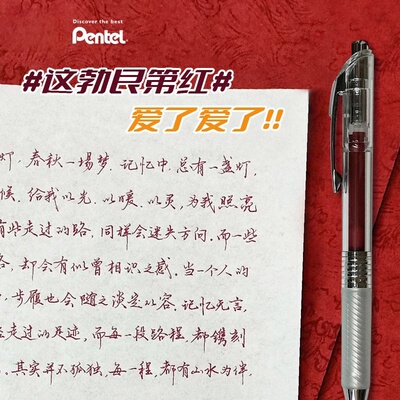 Discover the best
Pentel
#这勃艮第红#
爱了爱了!!
灯,春秋一場梦,记忆中,总有一盏灯,
候,给我以光,以暖,以灵,为我照亮
有些走过的路,同样会迷失方向,而一些
却会有似曾相识之感,当一个人的
步履也会随之淡定从容,记忆无言,
走过的足迹,而每一段路程,都镌刻
其实并不孤独,每一程,都有山水为伴,